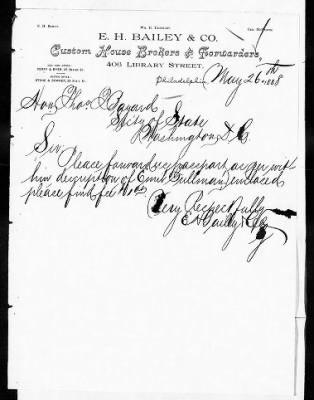 E. H. BAILEY & CO.
Custom House Brokers & Forwarders,
406 LIBRARY STREET,
Philadelphia, May 26th 1888
Hon. Thos. F. Bayard
Secty of State
Washington D. C.
Sir
Please forward us passport as per with
him description of Emil Gullman, enclosed
please find fee
Very Respectfully
E H Bailey & Co